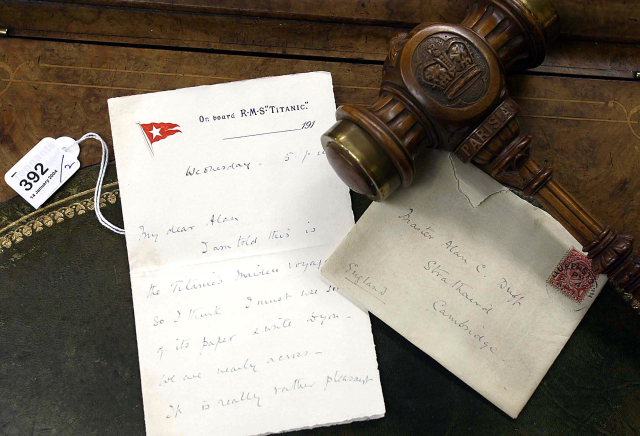 392/2
14 January 2004
On board R·M·S "TITANIC".
191
Wednesday. 5 p.m
My dear Alan
I am told this is
the Titanic's maiden voyage
So I think I must use some
of its paper & write
We are nearly across -
It is really rather pleasant
Master Alan C. Duff
Cambridge.
England